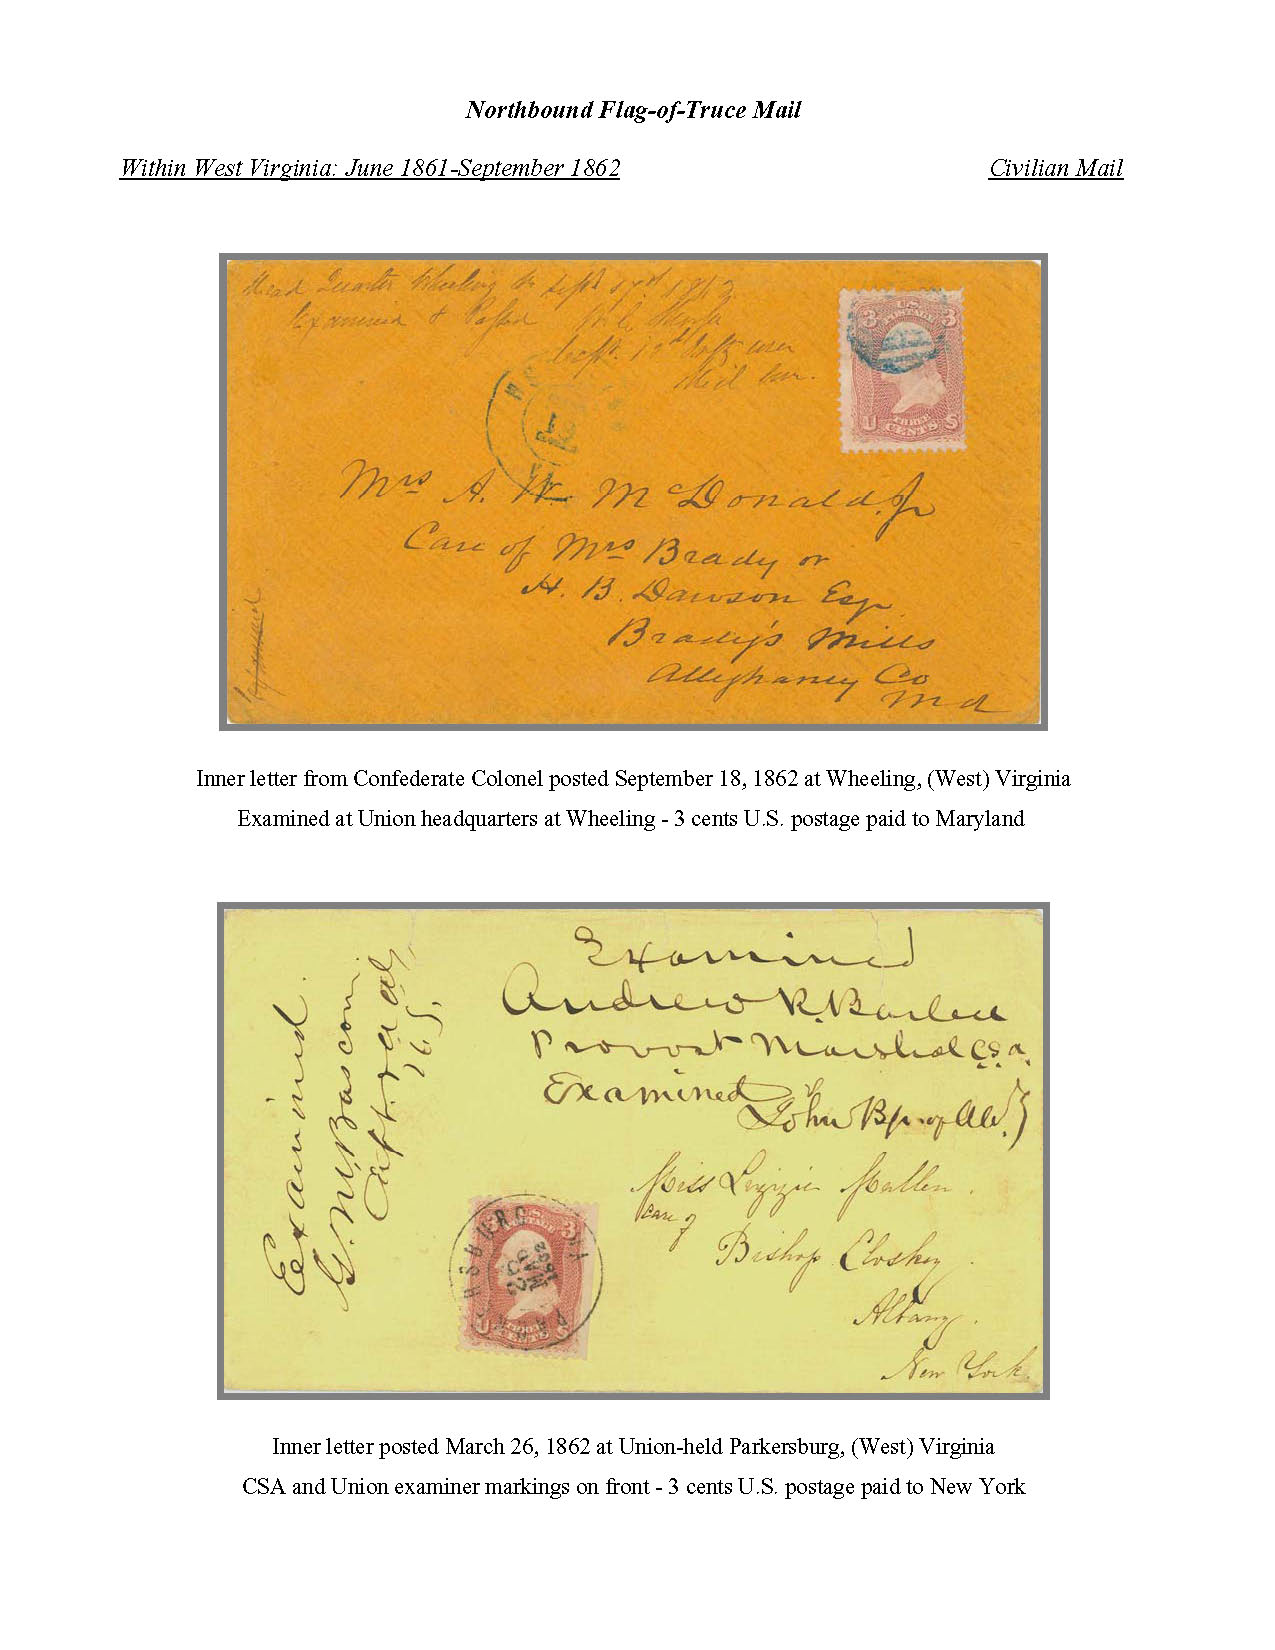 Northbound Flag-of-Truce Mail
Within West Virginia: June 1861-September 1862
Civilian Mail
Head Quarter Wheeling Sept
Examined &
U.S.
POSTAGE
3 3
U THREE S
CENTS
Mrs A. W. McDonald. Jr
Care of Mrs Brady or
H. B. Dawson Esq
Brady's Mills
Alleghaney Co
Md
Examined
Inner letter from Confederate Colonel posted September 18, 1862 at Wheeling, (West) Virginia
Examined at Union headquarters at Wheeling - 3 cents U.S. postage paid to Maryland
Examined
Andrew R. Barbee
Provost Marshal C.S.A.
Examined
John
Examined
G. M. Bascom
Miss Lizzie Mullen
Care of
Bishop Closkey
Albany
New York.
U.S.
POSTAGE
3
U THREE
CENTS
Inner letter posted March 26, 1862 at Union-held Parkersburg, (West) Virginia
CSA and Union examiner markings on front - 3 cents U.S. postage paid to New York